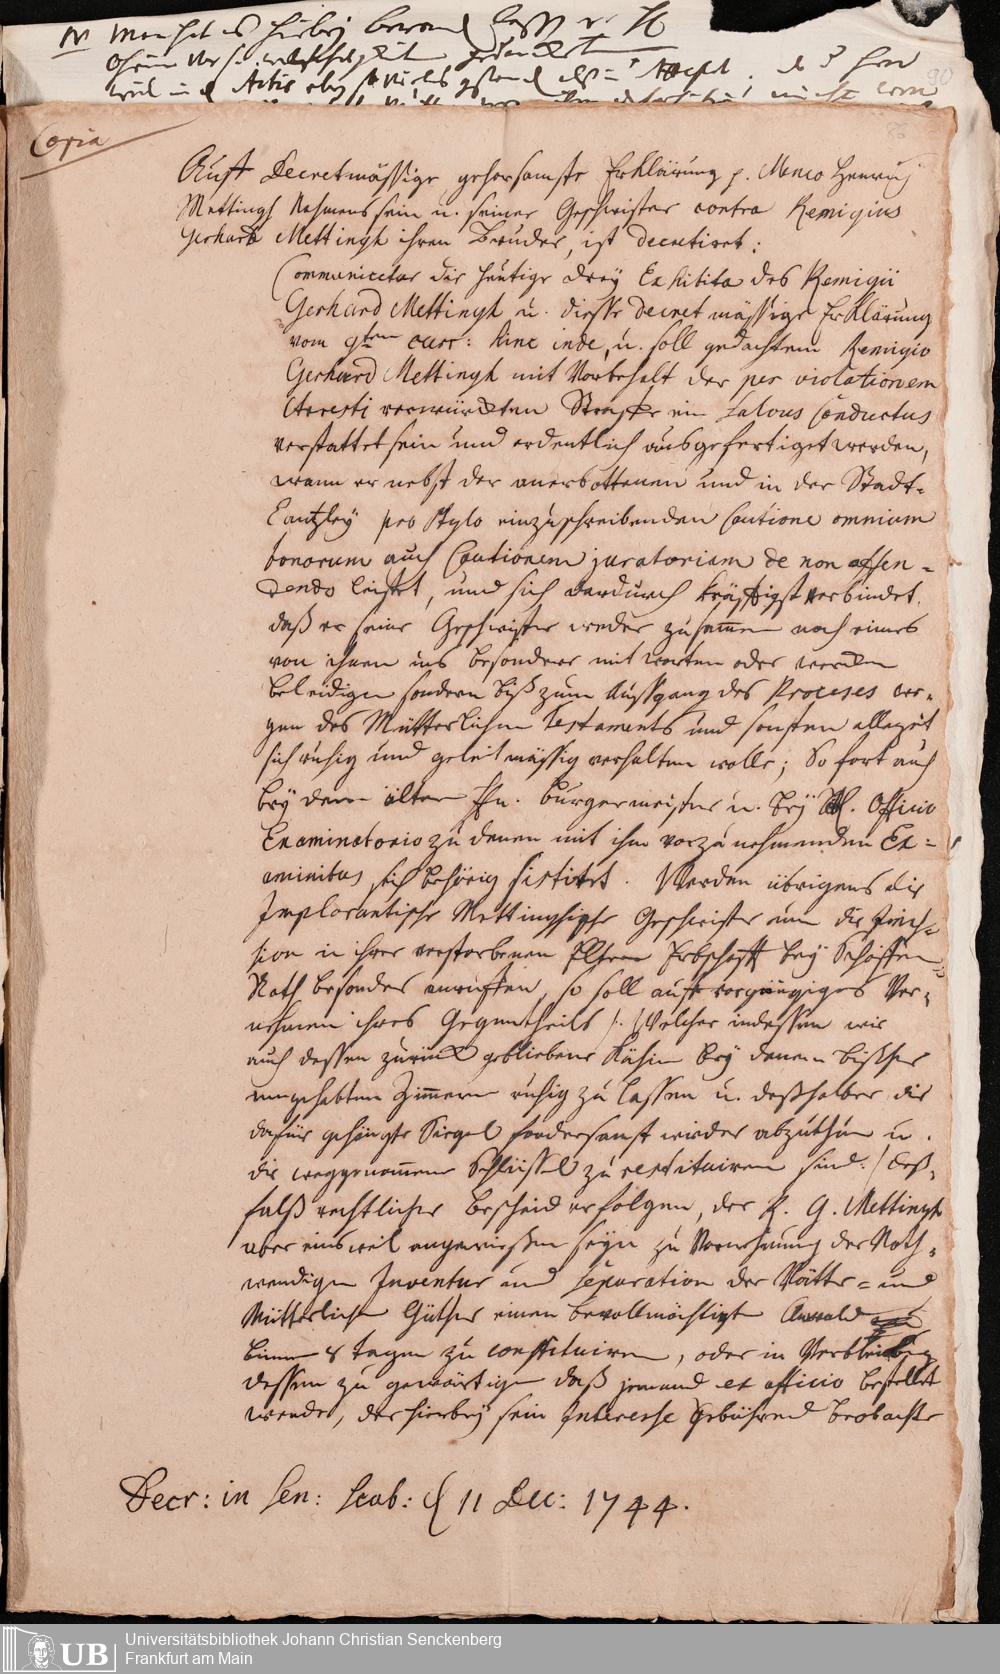 Copia
Auff Decretmässige gehorsamste Erklärung p. Menco Henrich
Mettingh Nahmens sein u. seiner Geschwister contra Remigius
Gerhard Mettingh ihren Bruder, ist decretirt:
Communicetur die heutige drey Exhibita des Remigii
Gerhard Mettingh u. diesse decretmässige Erklärung
vom 9ten curr: hinc inde, u. soll gedachtem Remigio
Gerhard Mettingh mit Vorbehalt der per violationem
Arresti verwürckten Straffe ein Salvus Conductus
verstattet sein und ordentlich ausgefertiget werden,
wann er nebst der anerbottenen und in der Stadt-
Cantzley pro stylo einzuschreibenden Cautione omnium
bonorum auch Cautionem juratoriam de non offen-
dendo leistet, und sich dardurch kräfftigst verbindet
daß er seine Geschwister weder zusammen noch eines
von ihnen ins besondere mit worten oder wercken
beleidigen sondern biß zum Ausgang des Processes we-
gen des Mütterlichen Testaments und sonsten allezeit
sich ruhig und geleitmässig verhalten wolle; So fort auch
bey dem ältern Hn. Burgermeister u. bey Löbl. Officio
Examinatorio zu denen mit ihm vorzunehmenden Ex-
aminibus sich behörig sistiret. Werden übrigens die
Implorantische Mettinghische Geschwister um die
sion in ihrer verstorbenen Eltern Erbschafft bey Schöffen-
Rath besonders anruffen, so soll auff vorgängiges Ver-
nehmen ihres Gegentheils /: Welcher indessen wie
auch dessen zurück gebliebene Köchin bey denen bißher
ingehabten Zimmern ruhig zu lassen u. deßhalben die
dafür gehängte Siegel fordersamst wieder abzuthun u.
die weggenommene Schlüssel zu restituiren sind :/ deß-
falß rechtlicher Bescheid erfolgen, der R. G. Mettingh
aber einsweil angewiesen seyn zu Vornehmung der Noth-
wendigen Inventur und Separation der Vätter- und
Mütterlichen Güther einen bevollmächtigt Anwald
binnen 8 Tagen zu constituiren, oder in Verbleibung
dessen zu gewärtigen daß jemand ex officio bestellet
werde, der hierbey sein Interesse gebührend beobachte
Decr: in Sen: Scab: d 11 Dec: 1744.
UB
Universitätsbibliothek Johann Christian Senckenberg
Frankfurt am Main